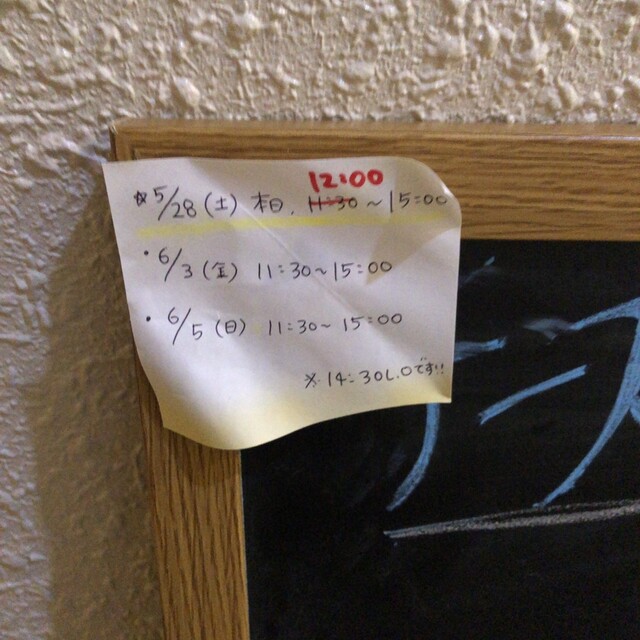 12:00
☆5/28(土) 本日、11:30~15:00
・6/3(金) 11:30~15:00
・6/5(日) 11:30~15:00
※14:30L.Oです!!